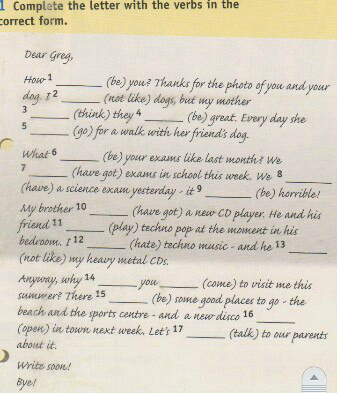 1 Complete the letter with the verbs in the
correct form.
Dear Greg,
How 1 ______ (be) you? Thanks for the photo of you and your
dog. I 2 ______ (not like) dogs, but my mother
3 ______ (think) they 4 ______ (be) great. Every day she
5 ______ (go) for a walk with her friend's dog.
What 6 ______ (be) your exams like last month? We
7 ______ (have got) exams in school this week. We 8 ______
(have) a science exam yesterday - it 9 ______ (be) horrible!
My brother 10 ______ (have got) a new CD player. He and his
friend 11 ______ (play) techno pop at the moment in his
bedroom. I 12 ______ (hate) techno music - and he 13 ______
(not like) my heavy metal CDs.
Anyway, why 14 ______ you ______ (come) to visit me this
summer? There 15 ______ (be) some good places to go - the
beach and the sports centre - and a new disco 16 ______
(open) in town next week. Let's 17 ______ (talk) to our parents
about it.
Write soon!
Bye!